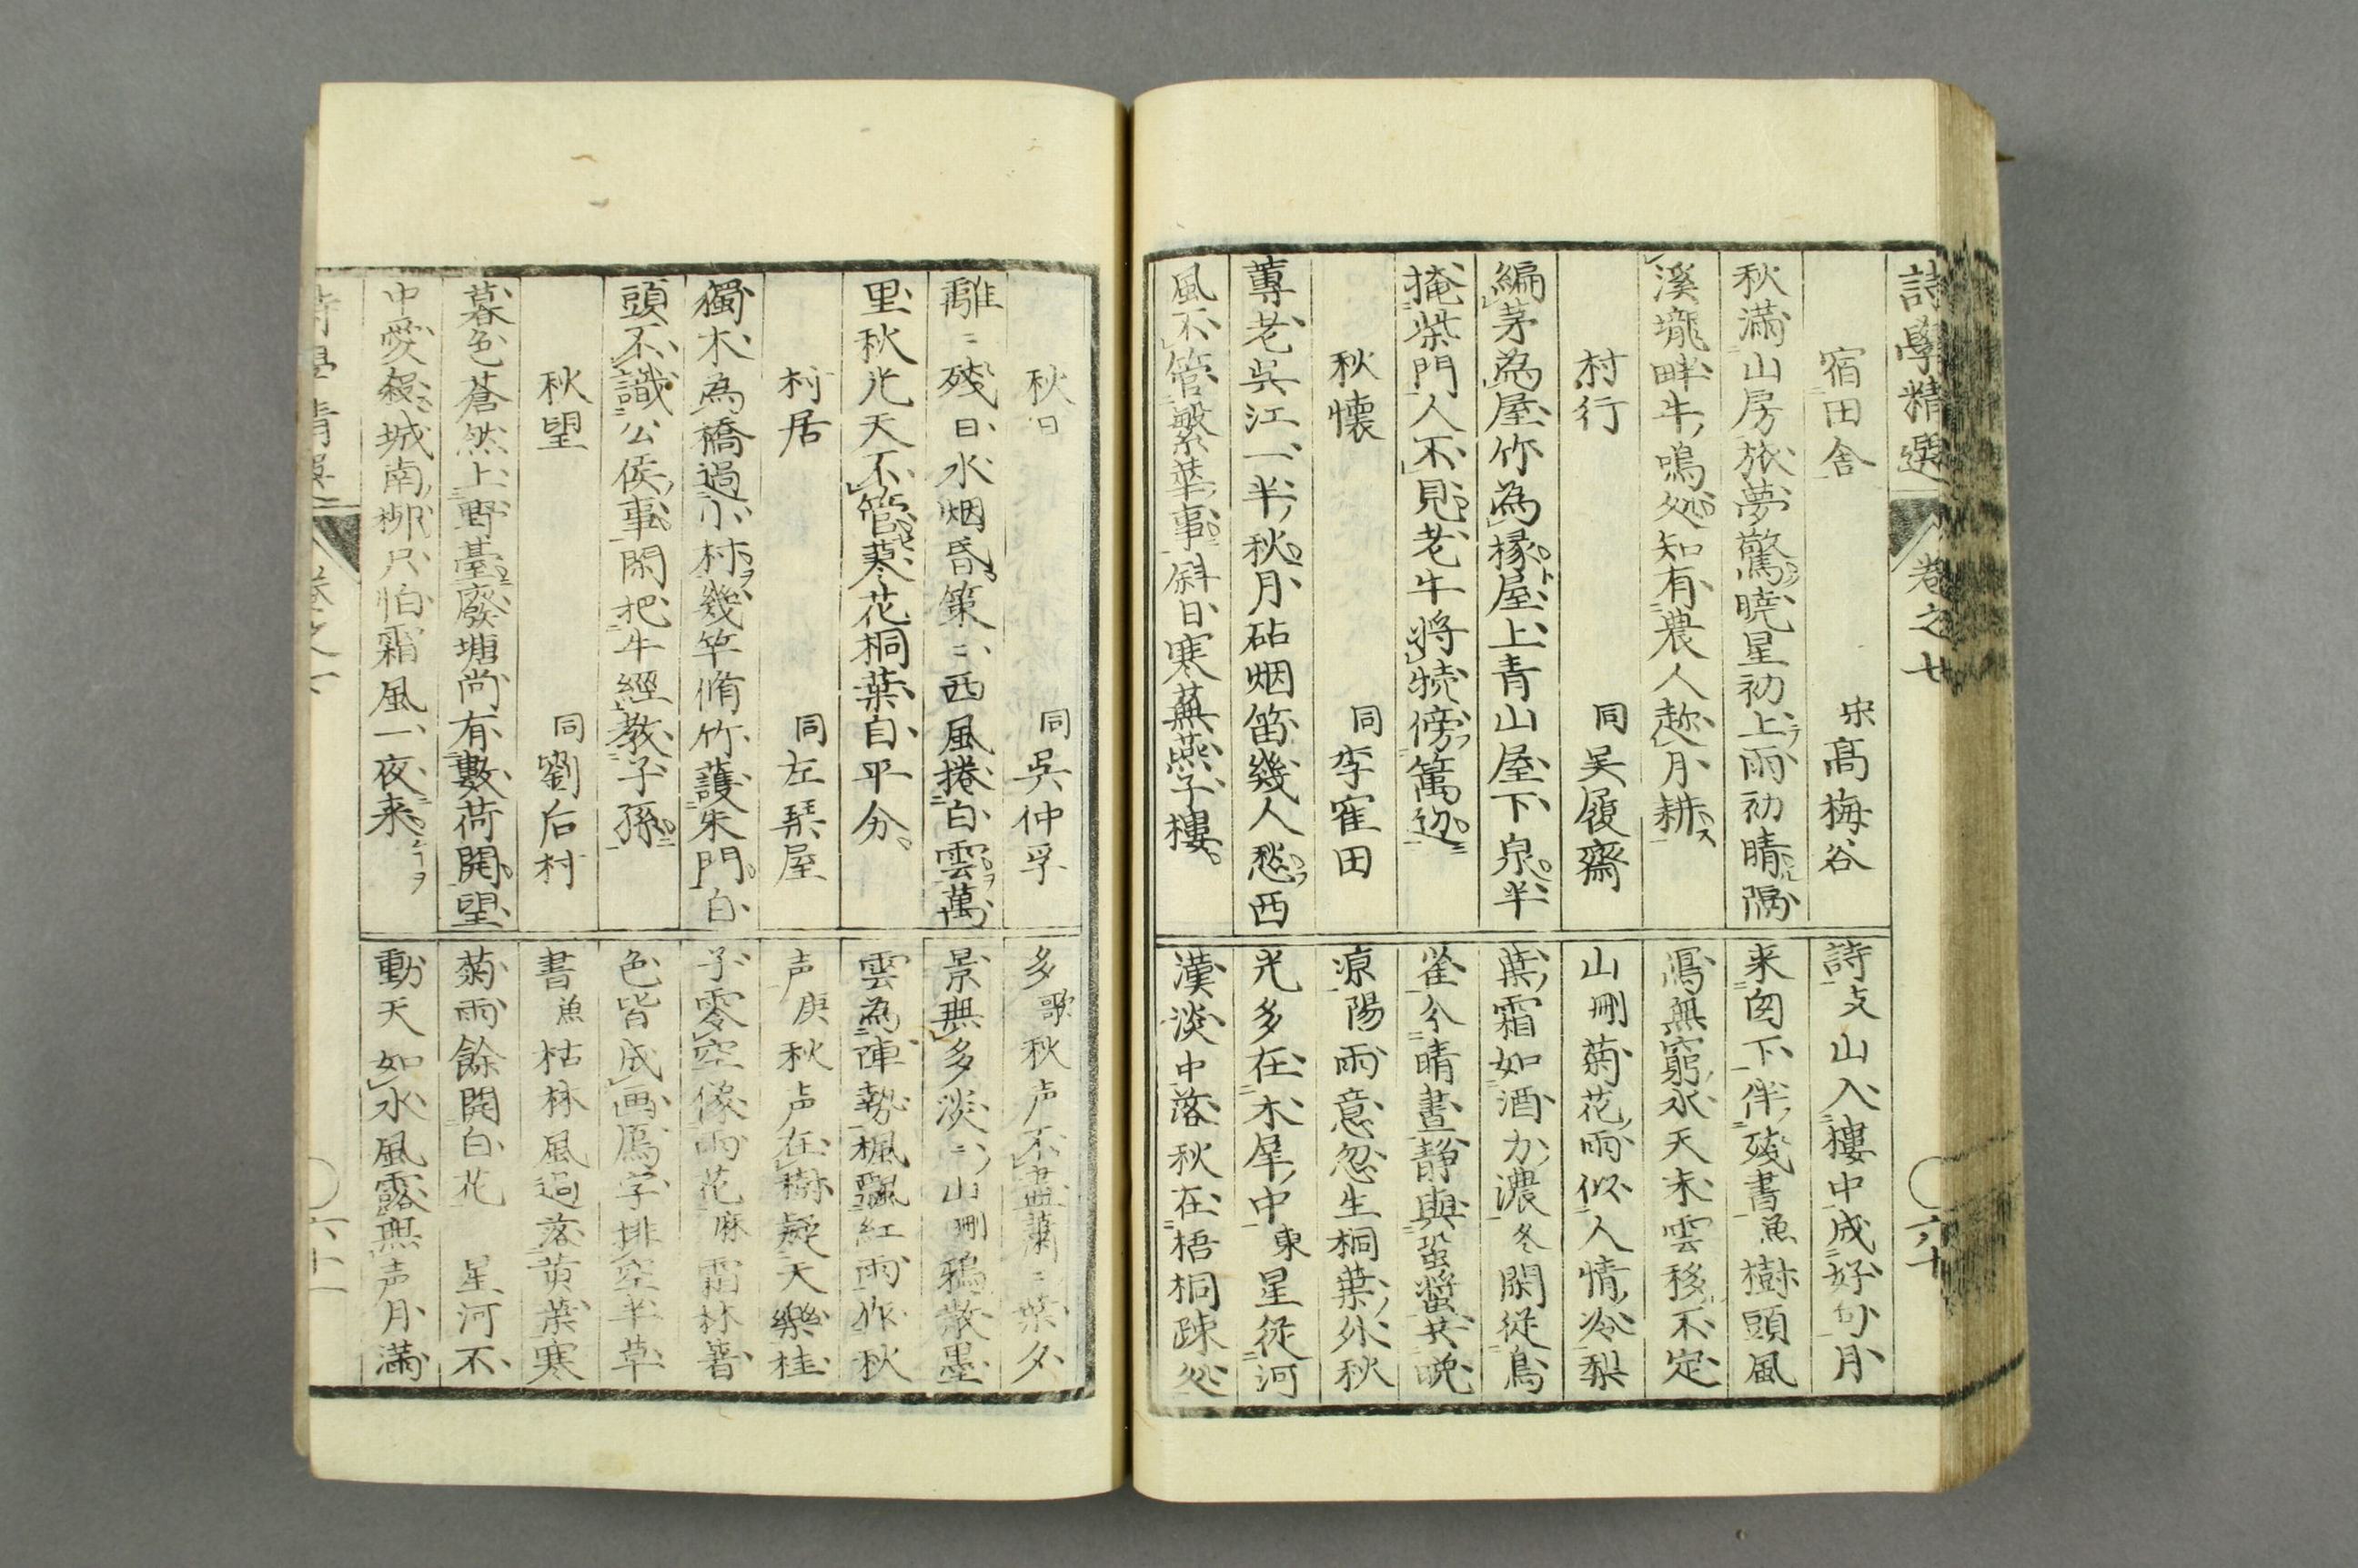 詩學精選 卷之廿 六十
宿田舎 宋髙梅谷
秋滿山房旅夢驚曉星初上雨初晴隔
溪壠畔牛鳴処知有農人趂月耕
村行 同吴履齋
編茅為屋竹為椽屋上青山屋下泉半
掩柴門人不見老牛將犢傍篱边
秋懐 同李寉田
蓴老吳江一半秋月砧烟笛幾人愁西
風不管繁華事斜日寒蕪燕子樓
詩文山入樓中成好句月
来囱下伴殘書魚樹頭風
瀉無窮水天末雲移不定
山刪菊花雨似人情冷梨
葉霜如酒力濃冬閑従鳥
雀分晴晝静與蛩螿共晩
凉陽雨意忽生桐葉外秋
光多在木犀中東星従河
漢淡中落秋在梧桐疎処
秋日 同吳仲孚
離〻殘日水烟昏策〻西風捲白雲萬
里秋光天不管蓼花桐葉自平分
村居 同左琴屋
獨木為橋過小村幾竿脩竹護朱門白
頭不識公侯事閑把牛經教子孫
秋望 同劉后村
暮色蒼然上野臺廢塘尚有數荷開望
中愛殺城南柳只怕霜風一夜来
多歌秋声不盡蕭〻葉夕
景無多淡〻山刪鴉散墨
雲為陣勢楓飄紅雨作秋
声庚秋声在樹疑天樂桂
子零空像雨花麻霜林著
色皆成画鴈字排空半草
書魚枯林風過落黄葉寒
菊雨餘開白花 星河不
動天如水風露無声月滿